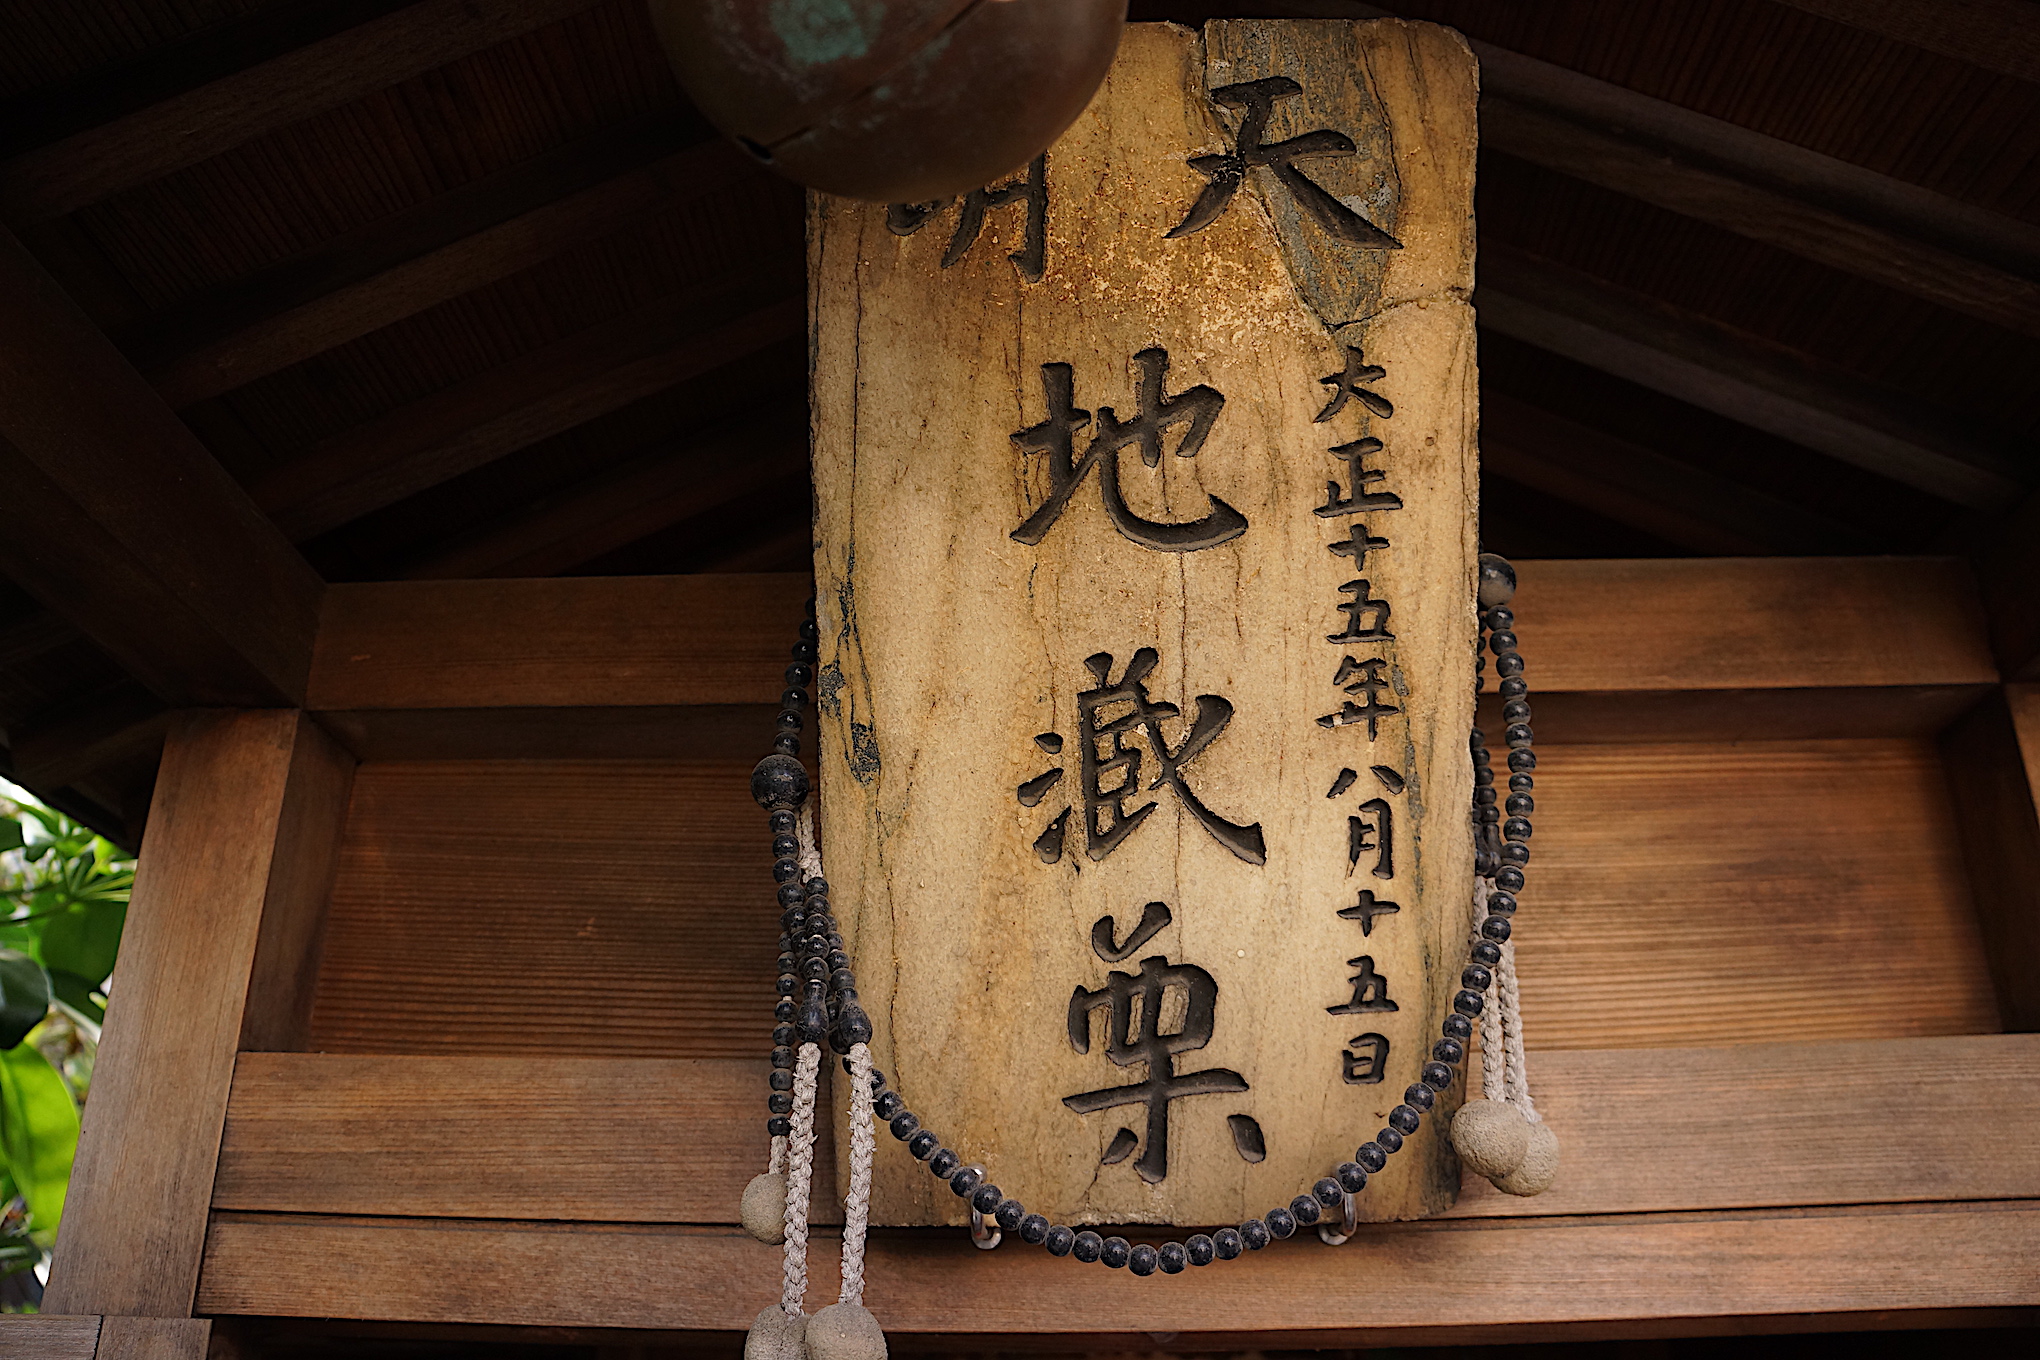 天
大正十五年八月十五日
地蔵栗